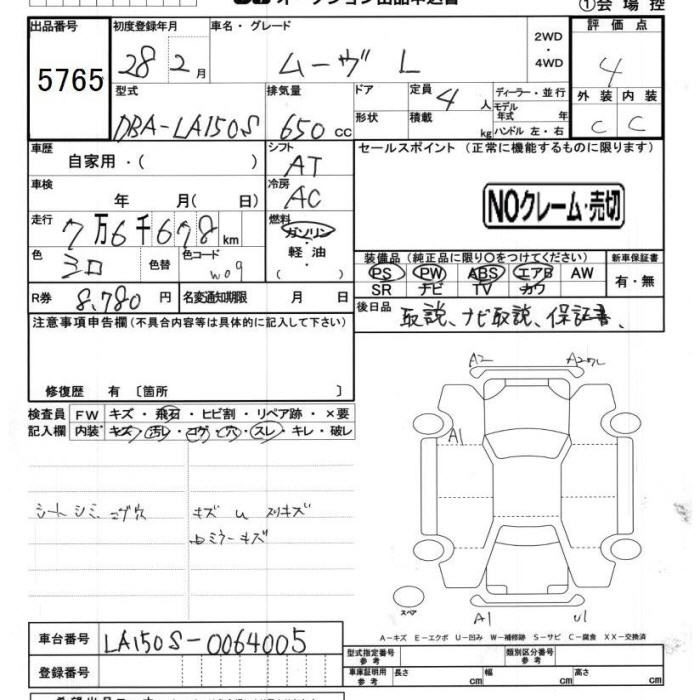 オークション出品申込書
①会場控
出品番号 初度登録年月 車名・グレード 評価点
5765 28 2月 ムーヴ L 2WD・4WD 4
型式 排気量 ドア 定員 ディーラー・並行 外装 内装
DBA-LA150S 650cc 4人 モデル年式 年 C C
形状 積載 kg ハンドル 左・右
車歴 シフト セールスポイント (正常に機能するものに限ります)
自家用・( ) AT
車検 冷房
年 月( 日) AC NOクレーム・売切
走行 燃料
7万6千678km ガソリン・軽油
色 色替 色コード 装備品 (純正品に限り○をつけてください) 新車保証書
シロ W09 PS PW ABS エアB AW 有・無
SR ナビ TV カワ
R券 8,780円 名変通知期限 月 日 後日品 取説、ナビ取説、保証書、
注意事項申告欄(不具合内容等は具体的に記入して下さい)
修復歴 有 〔箇所 〕
検査員 FW キズ・飛石・ヒビ割・リペア跡・×要
記入欄 内装 キズ・汚レ・コゲ・穴・スレ・キレ・破レ
A2
A1
シートシミ キズ U スリキズ
ミラーキズ
スペア
A1 U1
A-キズ E-エクボ U-凹み W-補修跡 S-サビ C-腐食 XX-交換済
車台番号 LA150S-0064005
型式指定番号 参考 類別区分番号 参考
登録番号 車庫証明用 参考 長さ cm 幅 cm 高さ cm